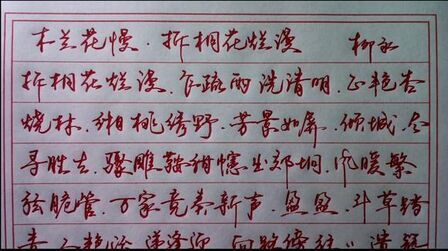 木兰花慢·拆桐花烂漫 柳永
拆桐花烂漫,乍疏雨、洗清明。正艳杏
烧林,缃桃绣野,芳景如屏。倾城,尽
寻胜去,骤雕鞍绀幰出郊坰。风暖繁
弦脆管,万家竞奏新声。盈盈,斗草踏
青。人艳冶、递逢迎。向路傍往